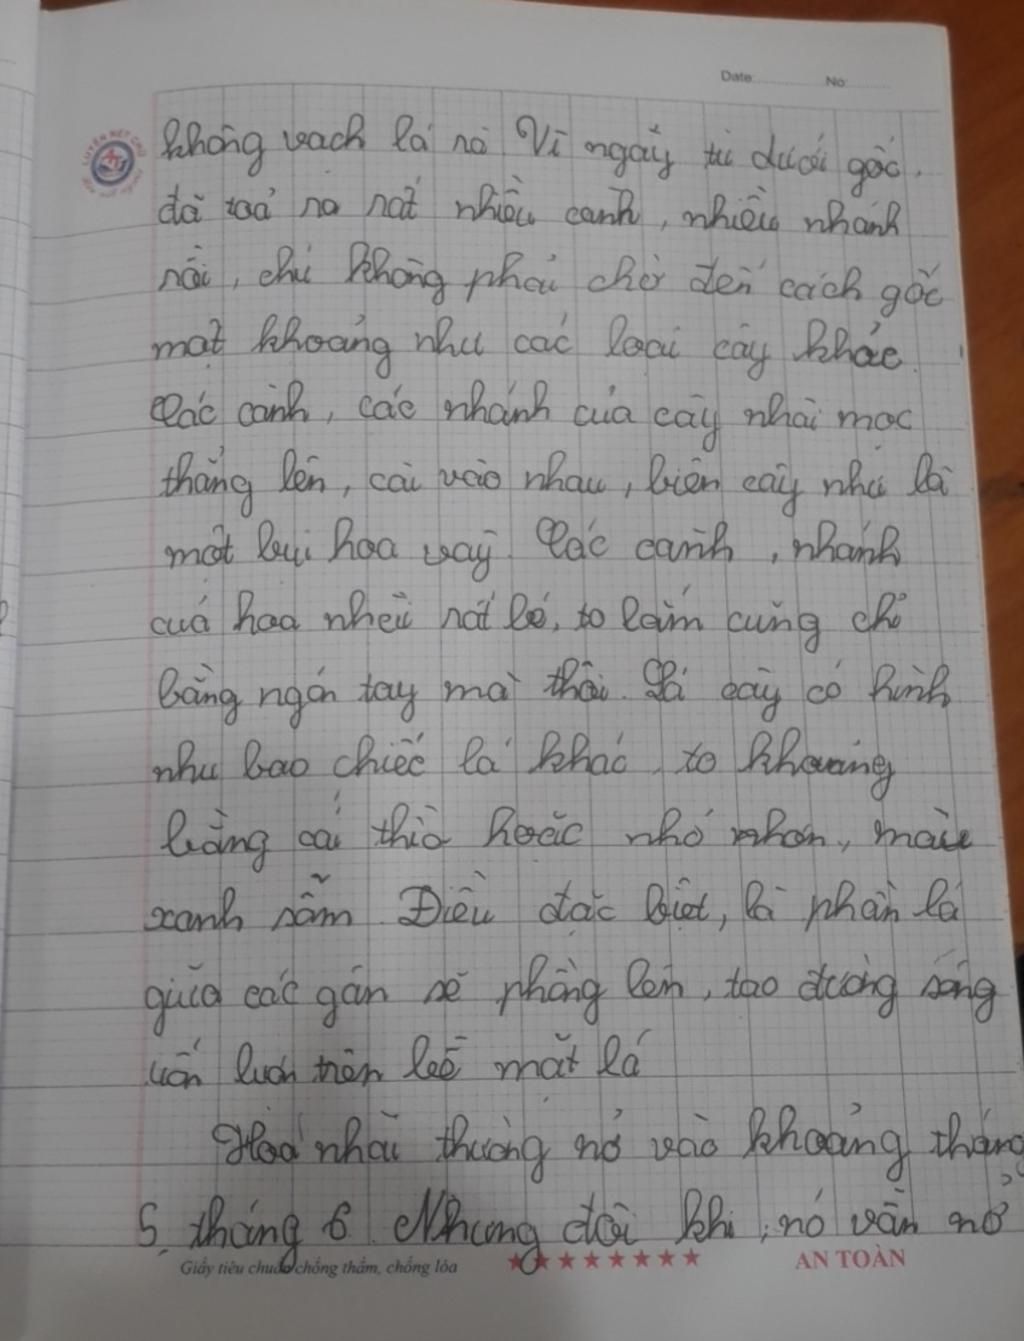 Date: No:
LUYỆN NÉT CHỮ
không vạch lá nò Vì ngấy từ dưới gốc,
đã toả ra rất nhiều cành, nhiều nhánh
rồi, chứ không phải chờ đến cách gốc
một khoảng như các loại cây khác.
Các cành, các nhánh của cây nhài mọc
thẳng lên, cài vào nhau, biến cây như là
một bụi hoa vậy. Các cành, nhánh
của hoa nhài rất bé, to lắm cũng chỉ
bằng ngón tay mà thôi. Lá cây có hình
như bao chiếc lá khác, to khoảng
bằng cái thìa hoặc nhỏ nhơn, màu
xanh sẫm. Điều đặc biệt, là phần lá
giữa các gân sẽ phồng lên, tạo đường sóng
uốn lượn trên bề mặt lá
Hoa nhài thường nở vào khoảng tháng
5, tháng 6. Nhưng đôi khi, nó vẫn nở
Giấy tiêu chuẩn chống thấm, chống lóa
AN TOÀN